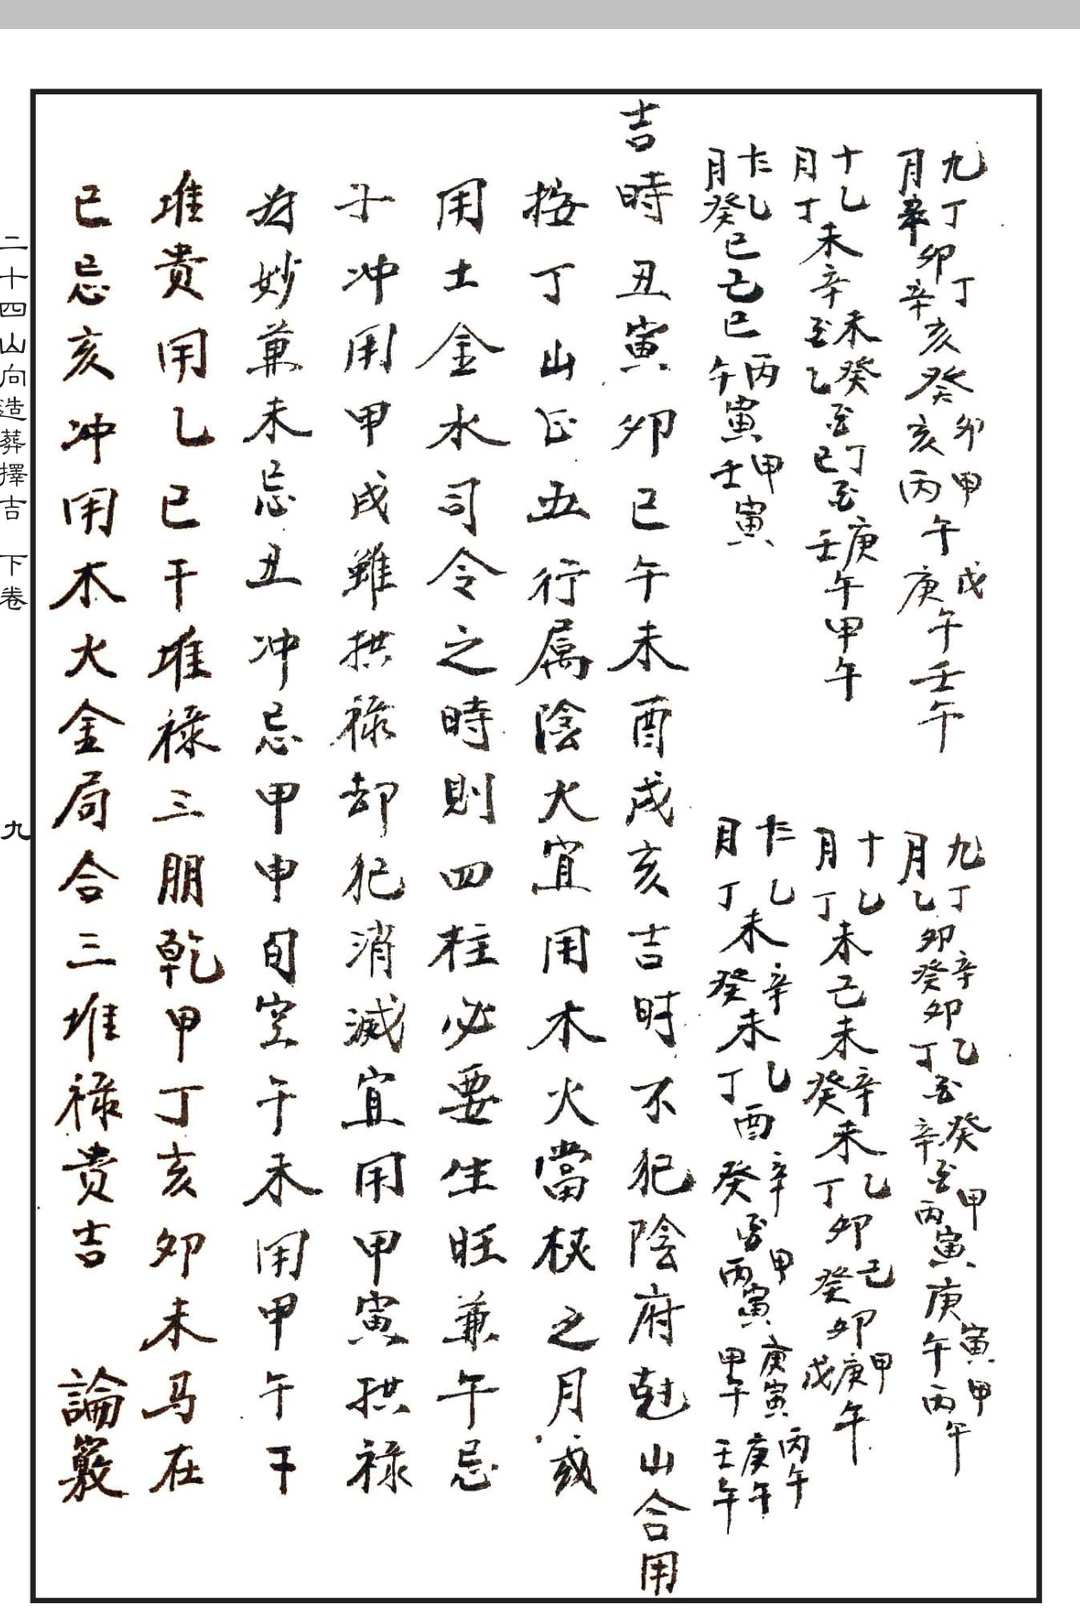 九丁丁卯甲戊
月辛卯辛亥癸亥丙午庚午壬午
九丁辛乙癸甲寅甲
月乙卯癸卯丁辛丙寅庚午丙午
十乙未癸丁庚
月丁未辛乙巳壬午甲午
十乙辛乙己甲
月丁未己未癸未丁卯癸卯戊庚午
十二乙丙甲
月癸巳己巳午寅壬寅
十二乙辛乙辛甲庚寅丙午
月丁未癸未丁酉癸丙寅甲午庚午壬午
吉時丑寅卯巳午未酉戌亥吉时不犯陰府尅山合用
按丁山正五行属陰火宜用木火當权之月或
用土金水司令之時則四柱必要生旺兼午忌
子冲用甲戌雖拱禄却犯消滅宜用甲寅拱禄
为妙兼未忌丑冲忌甲申旬空午未用甲午干
堆貴用乙巳干堆禄三朋乾甲丁亥卯未马在
巳忌亥冲用木火金局合三堆禄貴吉　論竅
二十四山向造葬擇吉　下卷
九